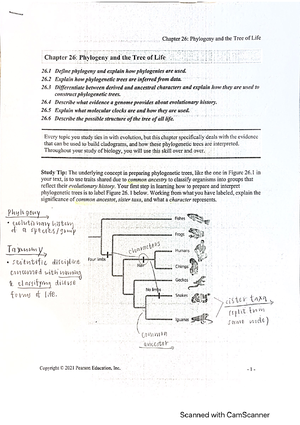 Chapter 26: Phylogeny and the Tree of Life
Chapter 26: Phylogeny and the Tree of Life
26.1 Define phylogeny and explain how phylogenies are used.
26.2 Explain how phylogenetic trees are inferred from data.
26.3 Differentiate between derived and ancestral characters and explain how they are used to
construct phylogenetic trees.
26.4 Describe what evidence a genome provides about evolutionary history.
26.5 Explain what molecular clocks are and how they are used.
26.6 Describe the possible structure of the tree of all life.
Every topic you study ties in with evolution, but this chapter specifically deals with the evidence
that can be used to build cladograms, and how these phylogenetic trees are interpreted.
Throughout your study of biology, you will use this skill over and over.
Study Tip: The underlying concept in preparing phylogenetic trees, like the one in Figure 26.1 in
your text, is to use traits shared due to common ancestry to classify organisms into groups that
reflect their evolutionary history. Your first step in learning how to prepare and interpret
phylogenetic trees is to label Figure 26.1 below. Working from what you have labeled, explain the
significance of common ancestor, sister taxa, and what a character represents.
Phylogeny
• evolutionary history
of a species/group
Taxonomy
• scientific discipline
concerned with naming
& classifying diverse
forms of life.
Fishes
Frogs
characters
Humans
Four limbs
Hair
Chimps
Geckos
No limbs
Snakes
Iguanas
sister taxa
(split from
same node)
common
ancestor
Copyright © 2021 Pearson Education, Inc.
- 1 -
Scanned with CamScanner